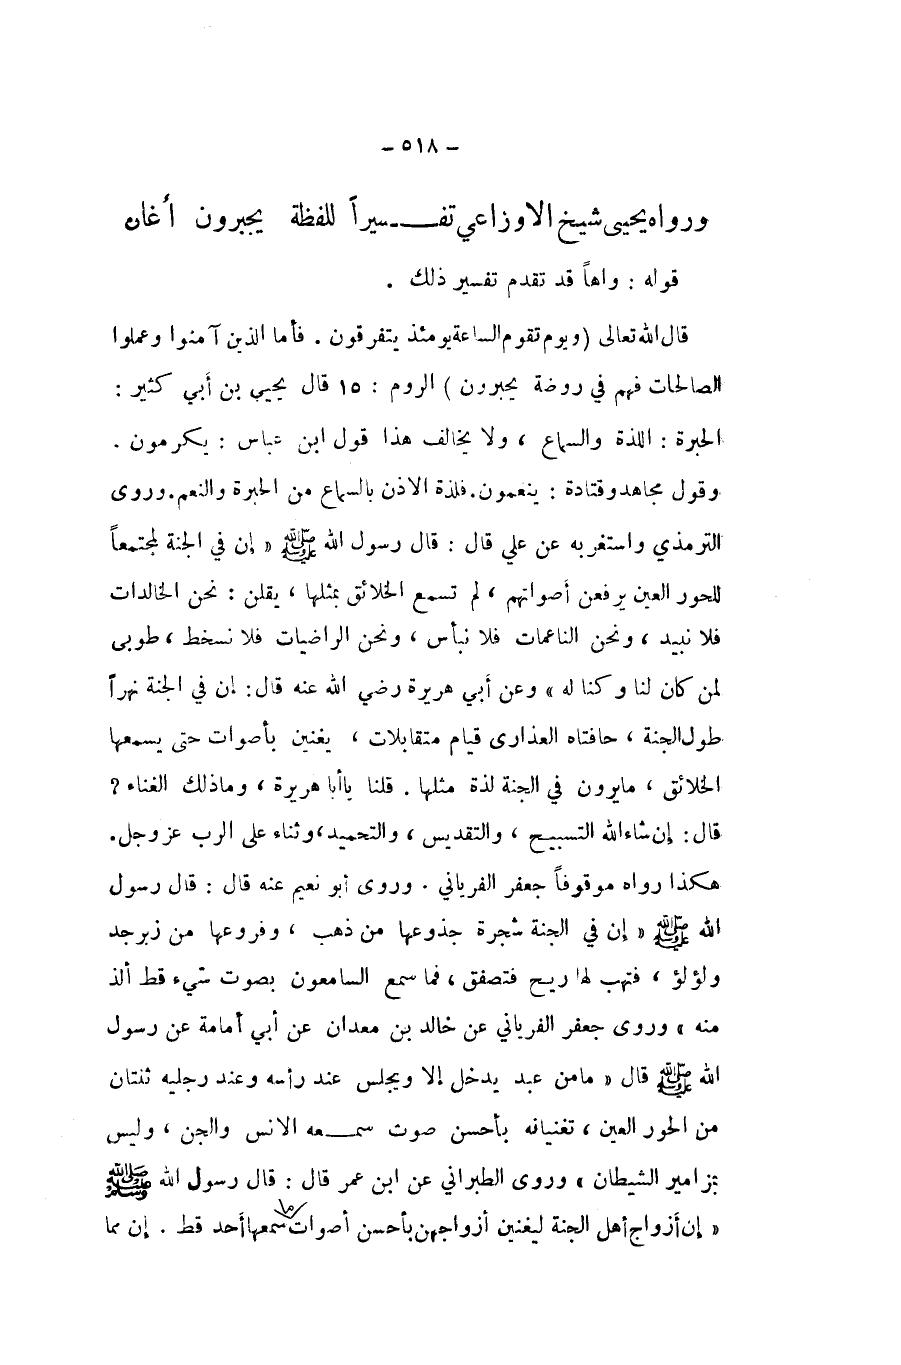 - ٥١٨ -
ورواه يحيى شيخ الاوزاعي تفـــسيراً للفظة يحبرون أغان
قوله : واهاً قد تقدم تفسير ذلك .
قال الله تعالى ( ويوم تقوم الساعة يومئذ يتفرقون . فأما الذين آمنوا وعملوا
الصالحات فهم في روضة يحبرون ) الروم : ١٥ قال يحيي بن أبي كثير :
الحبرة : اللذة والسماع ، ولا يخالف هذا قول ابن عباس : يكرمون .
وقول مجاهد وقتادة : ينعمون . فلذة الاذن بالسماع من الحبرة والنعم . وروى
الترمذي واستغربه عن علي قال : قال رسول الله ﷺ « إن في الجنة لمجتمعاً
للحور العين يرفعن أصواتهم ، لم تسمع الخلائق بمثلها ، يقلن : نحن الخالدات
فلا نبيد ، ونحن الناعمات فلا نبأس ، ونحن الراضيات فلا نسخط ، طوبى
لمن كان لنا وكنا له » وعن أبي هريرة رضي الله عنه قال : إن في الجنة نهراً
طول الجنة ، حافتاه العذارى قيام متقابلات ، يغنين بأصوات حتى يسمعها
الخلائق ، مايرون في الجنة لذة مثلها . قلنا ياأبا هريرة ، وماذلك الغناء ؟
قال : إن شاء الله التسبيح ، والتقديس ، والتحميد ، وثناء على الرب عز وجل .
هكذا رواه موقوفاً جعفر الفرياني . وروى أبو نعيم عنه قال : قال رسول
الله ﷺ « إن في الجنة شجرة جذوعها من ذهب ، وفروعها من زبرجد
ولؤلؤ ، فتهب لها ريح فتصفق ، فما سمع السامعون بصوت شيء قط ألذ
منه » وروى جعفر الفرياني عن خالد بن معدان عن أبي أمامة عن رسول
الله ﷺ قال « مامن عبد يدخل إلا ويجلس عند رأسه وعند رجليه ثنتان
من الحور العين ، تغنيانه بأحسن صوت سمـــعه الانس والجن ، وليس
بمزامير الشيطان » وروى الطبراني عن ابن عمر قال : قال رسول الله ﷺ
« إن أزواج أهل الجنة ليغنين أزواجهن بأحسن أصوات ما سمعها أحد قط . إن مما